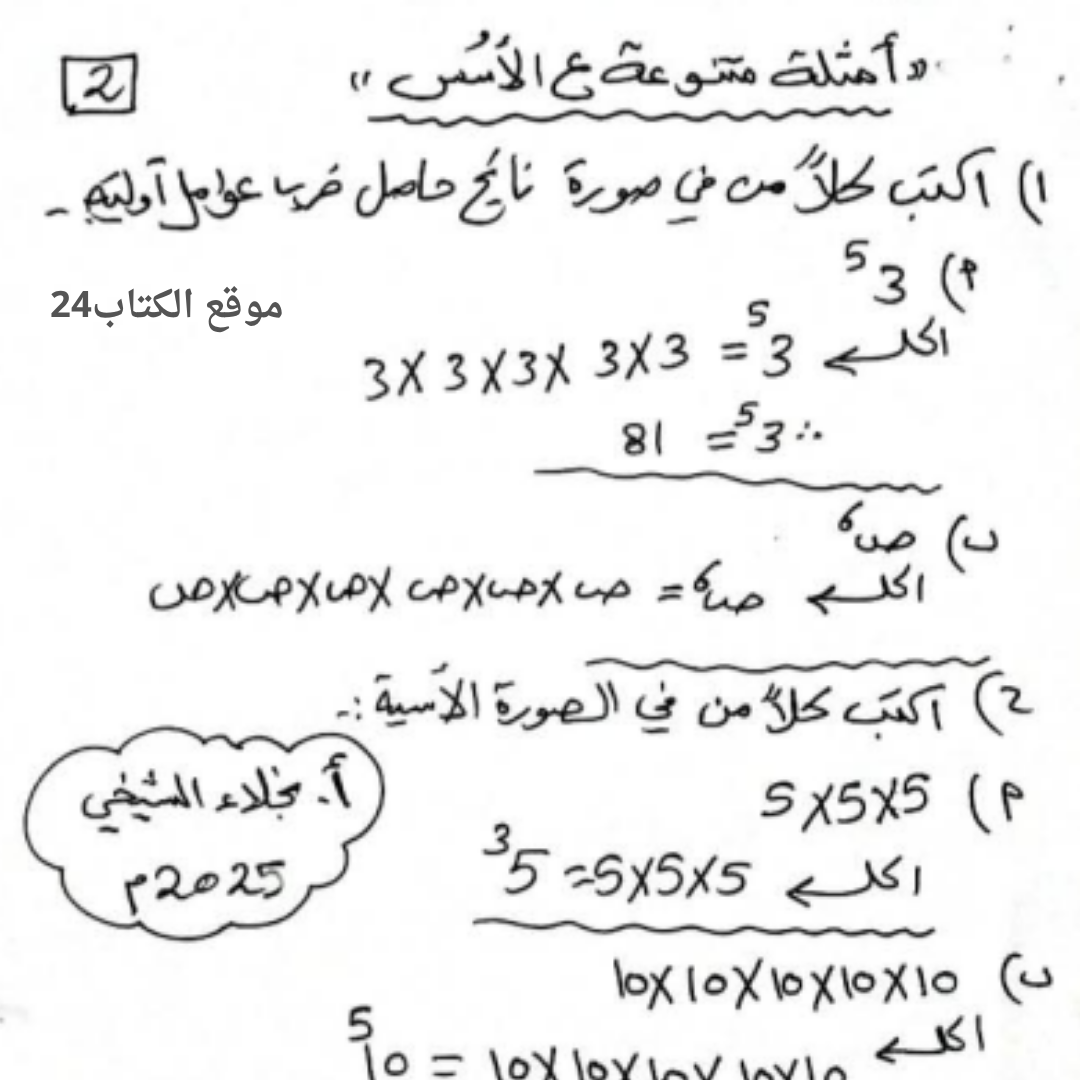 «أمثلة متنوعة ع الأُسُس»
2
1) اكتب كلاً من في صورة ناتج حاصل ضرب عوامل أولية -
م) 3⁵
موقع الكتاب24
الحل ← 3⁵ = 3×3 ×3×3×3
∴ 3⁵ = 81
ب) ص⁶
الحل ← ص⁶ = ص×ص×ص ×ص×ص×ص
2) اكتب كلاً من في الصورة الأسية :-
م) 5×5×5
الحل ← 5×5×5 = 5³
أ. نجلاء الشيخي
2025م
ب) 10×10×10×10×10
الحل ← 10×10×10×10×10 = 10⁵